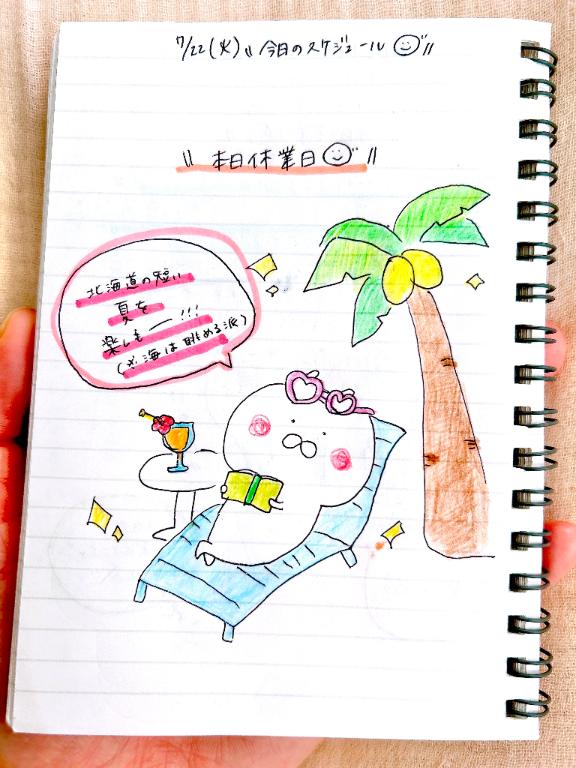 7/22(火) 〃今日のスケジュール〃
〃本日休業日〃
北海道の短い
夏を
楽しもー!!!
(※海は眺める派)